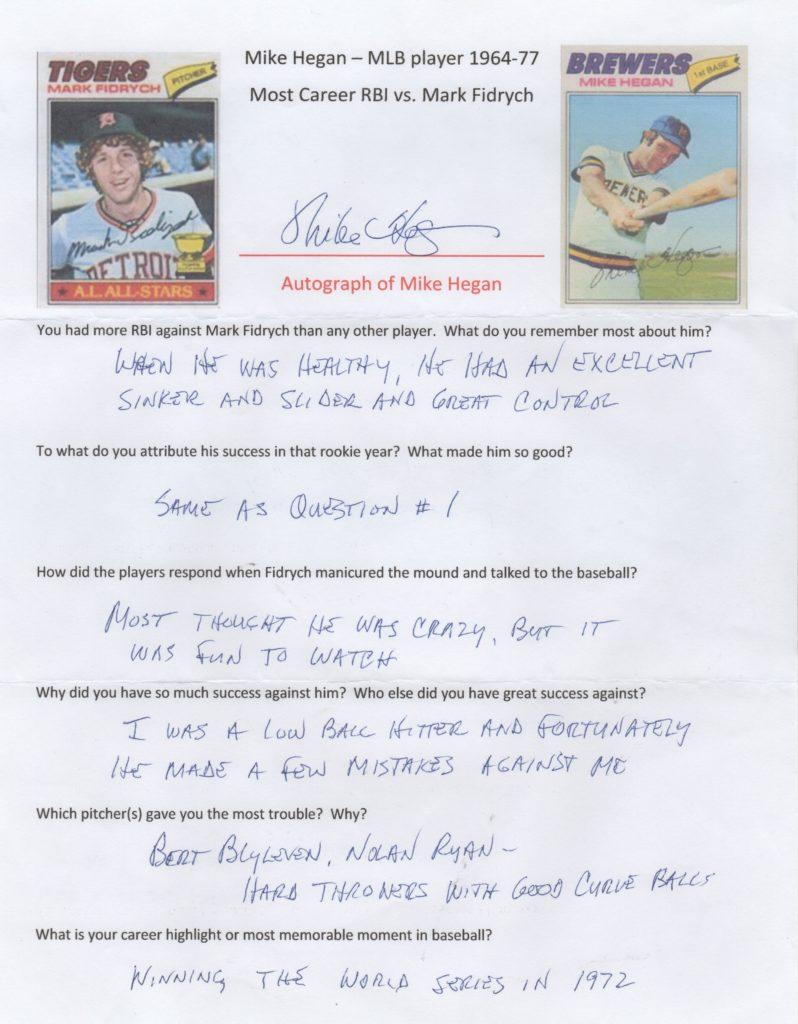 Mike Hegan – MLB player 1964-77
Most Career RBI vs. Mark Fidrych
TIGERS
MARK FIDRYCH
PITCHER
DETROIT
A.L. ALL-STARS
BREWERS
MIKE HEGAN
1st BASE
Mike Hegan
Autograph of Mike Hegan
You had more RBI against Mark Fidrych than any other player. What do you remember most about him?
WHEN HE WAS HEALTHY, HE HAD AN EXCELLENT
SINKER AND SLIDER AND GREAT CONTROL
To what do you attribute his success in that rookie year? What made him so good?
SAME AS QUESTION # 1
How did the players respond when Fidrych manicured the mound and talked to the baseball?
MOST THOUGHT HE WAS CRAZY, BUT IT
WAS FUN TO WATCH
Why did you have so much success against him? Who else did you have great success against?
I WAS A LOW BALL HITTER AND FORTUNATELY
HE MADE A FEW MISTAKES AGAINST ME
Which pitcher(s) gave you the most trouble? Why?
BERT BLYLEVEN, NOLAN RYAN –
HARD THROWERS WITH GOOD CURVE BALLS
What is your career highlight or most memorable moment in baseball?
WINNING THE WORLD SERIES IN 1972